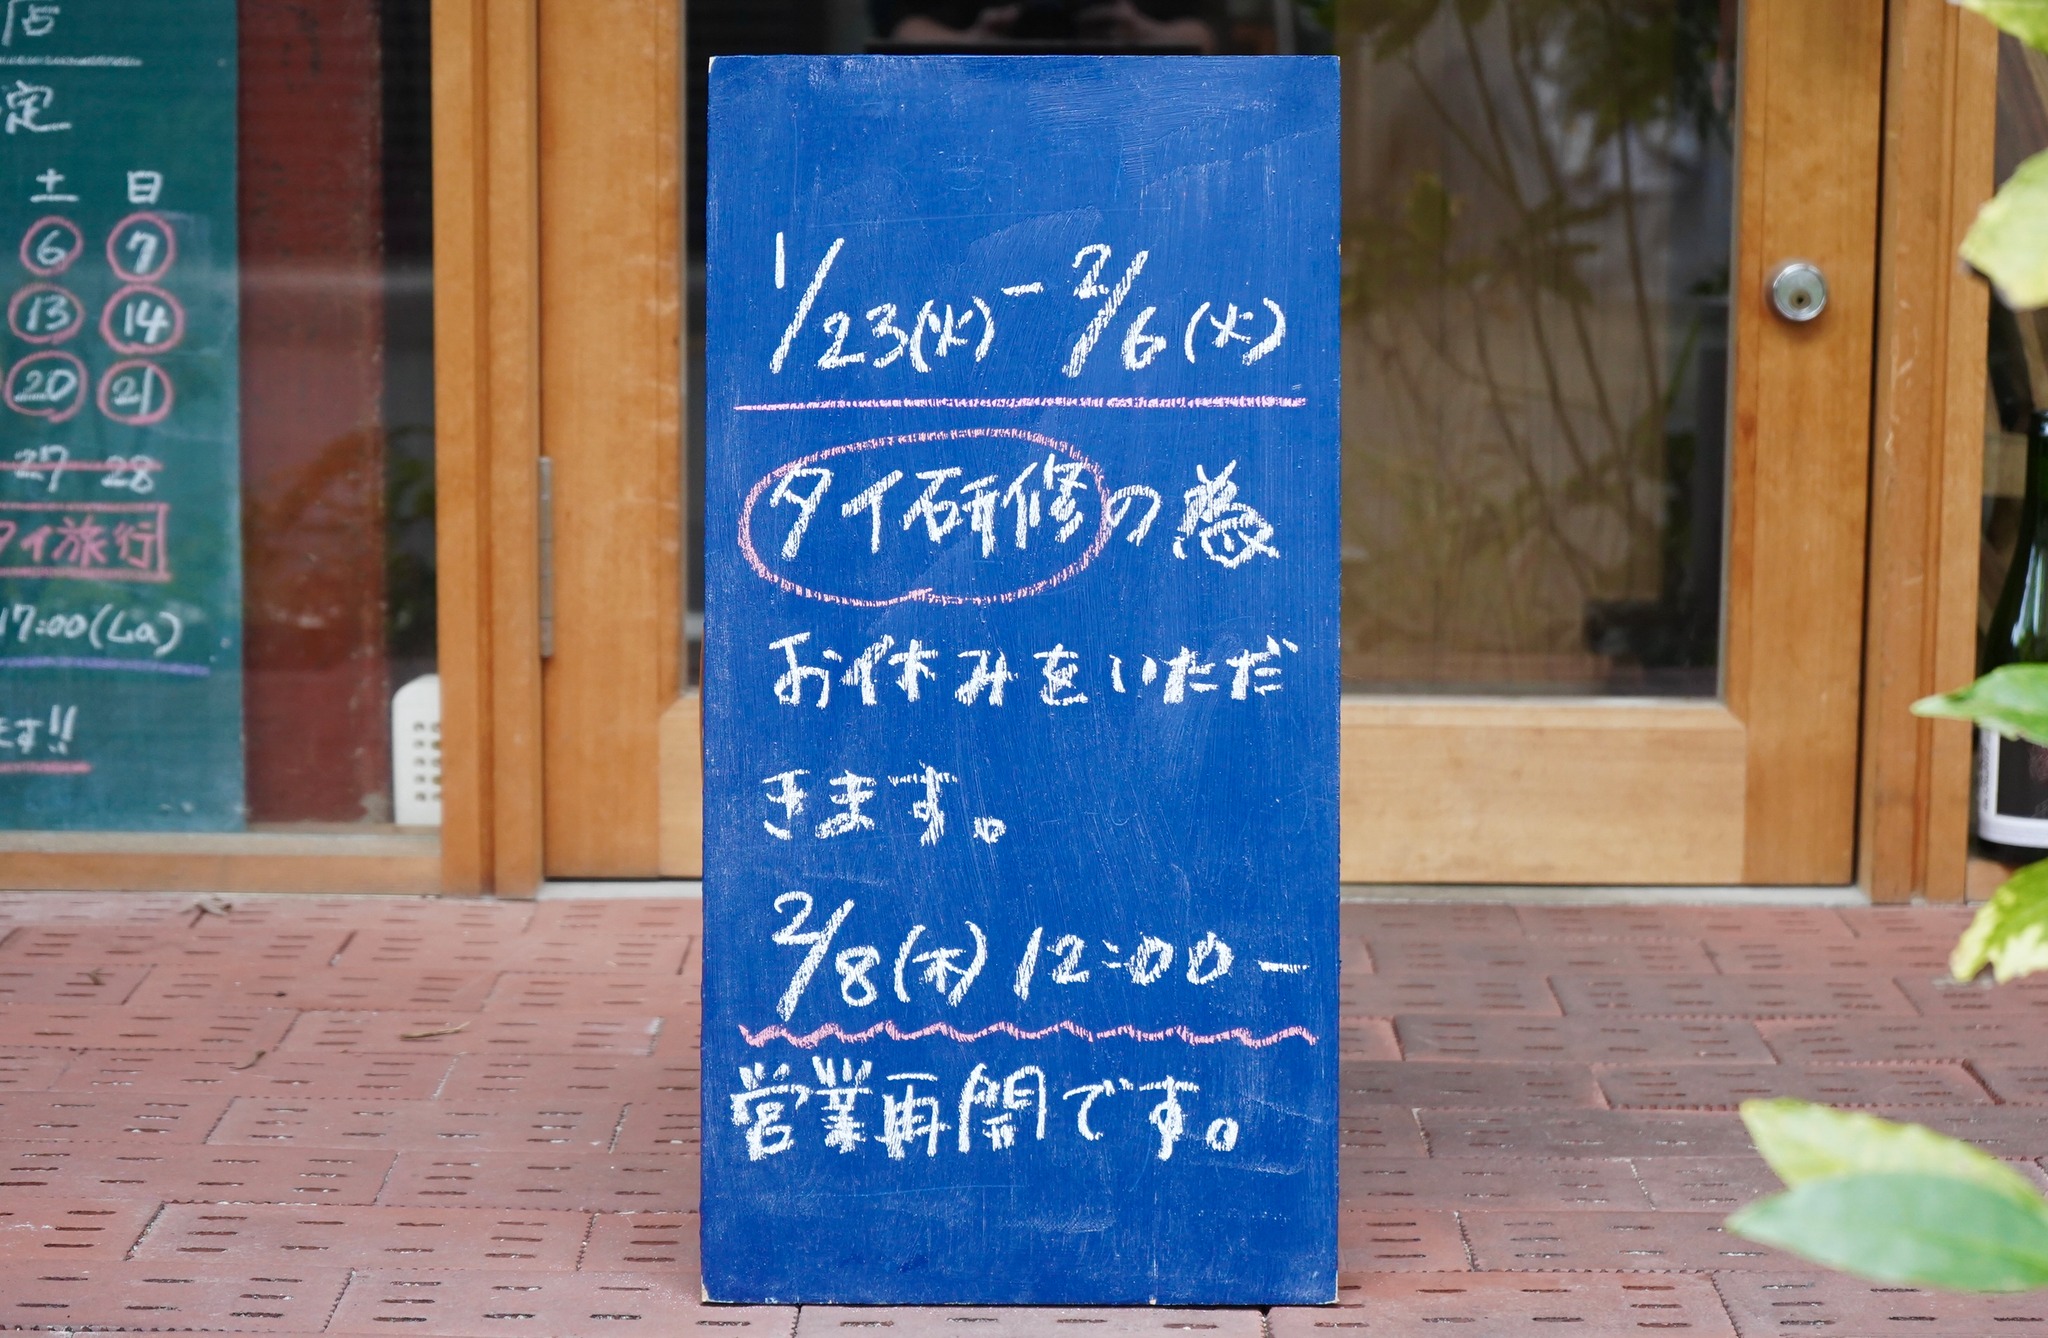 店
定
土 日
6 7
13 14
20 21
27 28
タイ旅行
17:00(La)
ます!!
1/23(火)-2/6(火)
タイ研修の為
お休みをいただ
きます。
2/8(木) 12:00-
営業再開です。